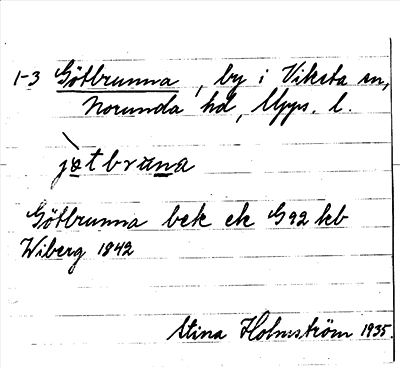 1-3 Götbrunna, by i Viksta sn,
Norunda hd, Upps. l.
jøtbruna
Götbrunna bek ek G 92 kb
Wiberg 1842
Stina Holmström 1935.